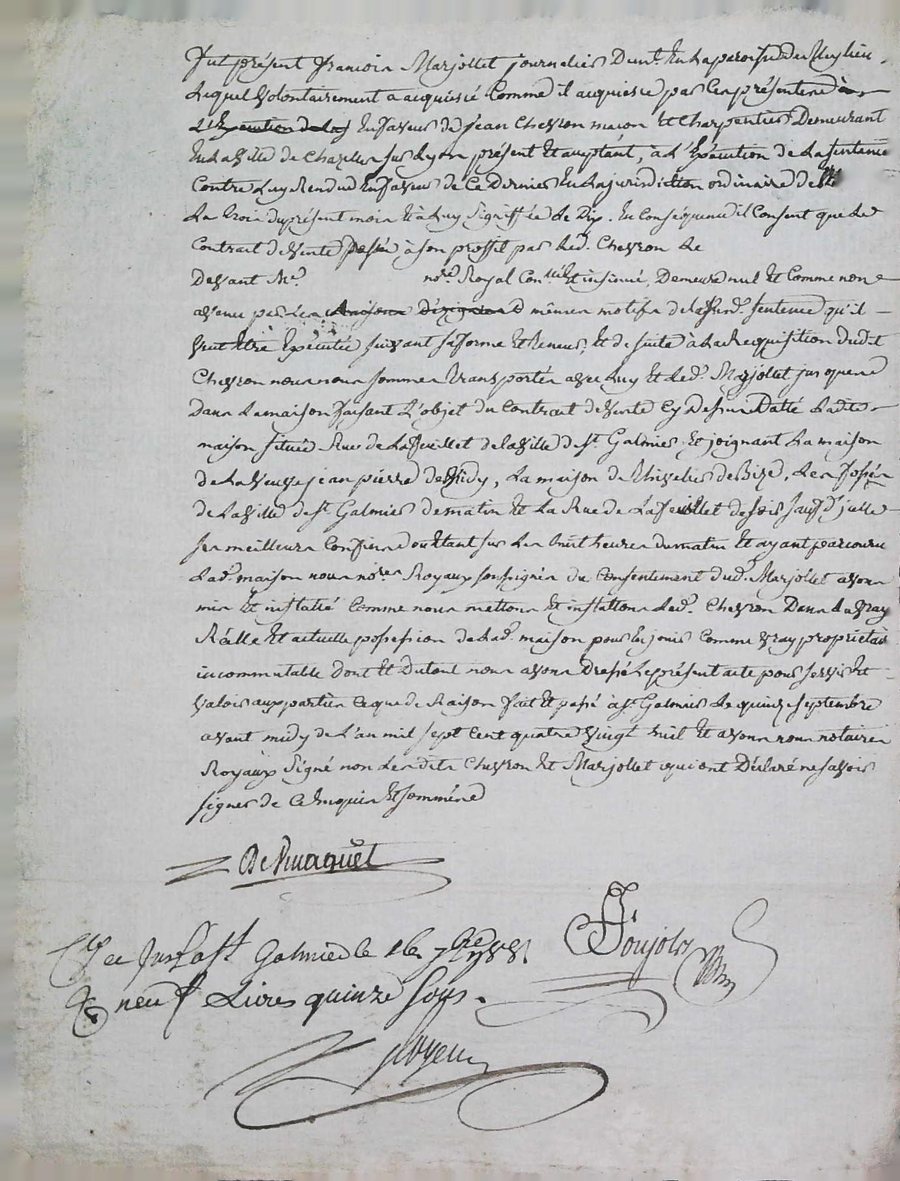 fut présent francois Marjollet journalier Demt. En la paroisse de
Lequel volontairement a acquiescé Comme il acquiesce par Ces présentes à
L'Exécution de la En faveur de jean Chevron macon Et Charpentier Demeurant
En la ville de Chazelles sur Lyon présent Et acceptant, à L'Exécution de la sentence
Contre Luy Rendue En faveur de Ce Dernier En la jurisdiction ordinaire de
La trois du présent mois Et à Luy Signiffiée Le Dix. En Conséquence il Consent que Le
Contrat de vente passé à son proffit par Led. Chevron Le
Devant Me. nore. Royal Con.. Et insinué, Demeure nul Et Comme non
avenu par les mêmes motifs de la susd. sentence qu'il
veut Etre Exécutée suivant sa forme Et teneur, Et de suite à La Requisition dudit
Chevron nous nous sommes transportés avec Luy Et Led. Marjollet jusques
Dans La maison faisant L'objet du Contrat de vente Cy Dessus Datté Ladite
maison située Rue de La feuillet de la ville de St. Galmier, Et joignant La maison
de La veuve jean pierre La maison de Les fossés
de La ville de St. Galmier de matin Et La Rue de La feuillet de soir sauf d'icelle
ses meilleurs Confins Et tant sur Les huit heures du matin Et ayant parcouru
Lad. maison nous nores. Royaux soussignés du Consentement dud. Marjollet avons
mis Et installé Comme nous mettons Et installons Led. Chevron Dans La vray
Réelle Et actuelle possession de Lad. maison pour En jouir Comme vray propriétaire
incommutable dont Et Du tout nous avons Dressé Le présent acte pour servir Et
valoir aux parties Ce que de Raison fait Et passé à St. Galmier Le quinze septembre
avant midy de L'an mil sept Cent quatre vingt huit Et avons nous notaires
Royaux Signé non Lesdits Chevron Et Marjollet qui ont Déclaré ne savoir
signer de Ce Enquis Et sommés
Galmier le 16. 7bre 1788.
neuf Livres quinze sous.